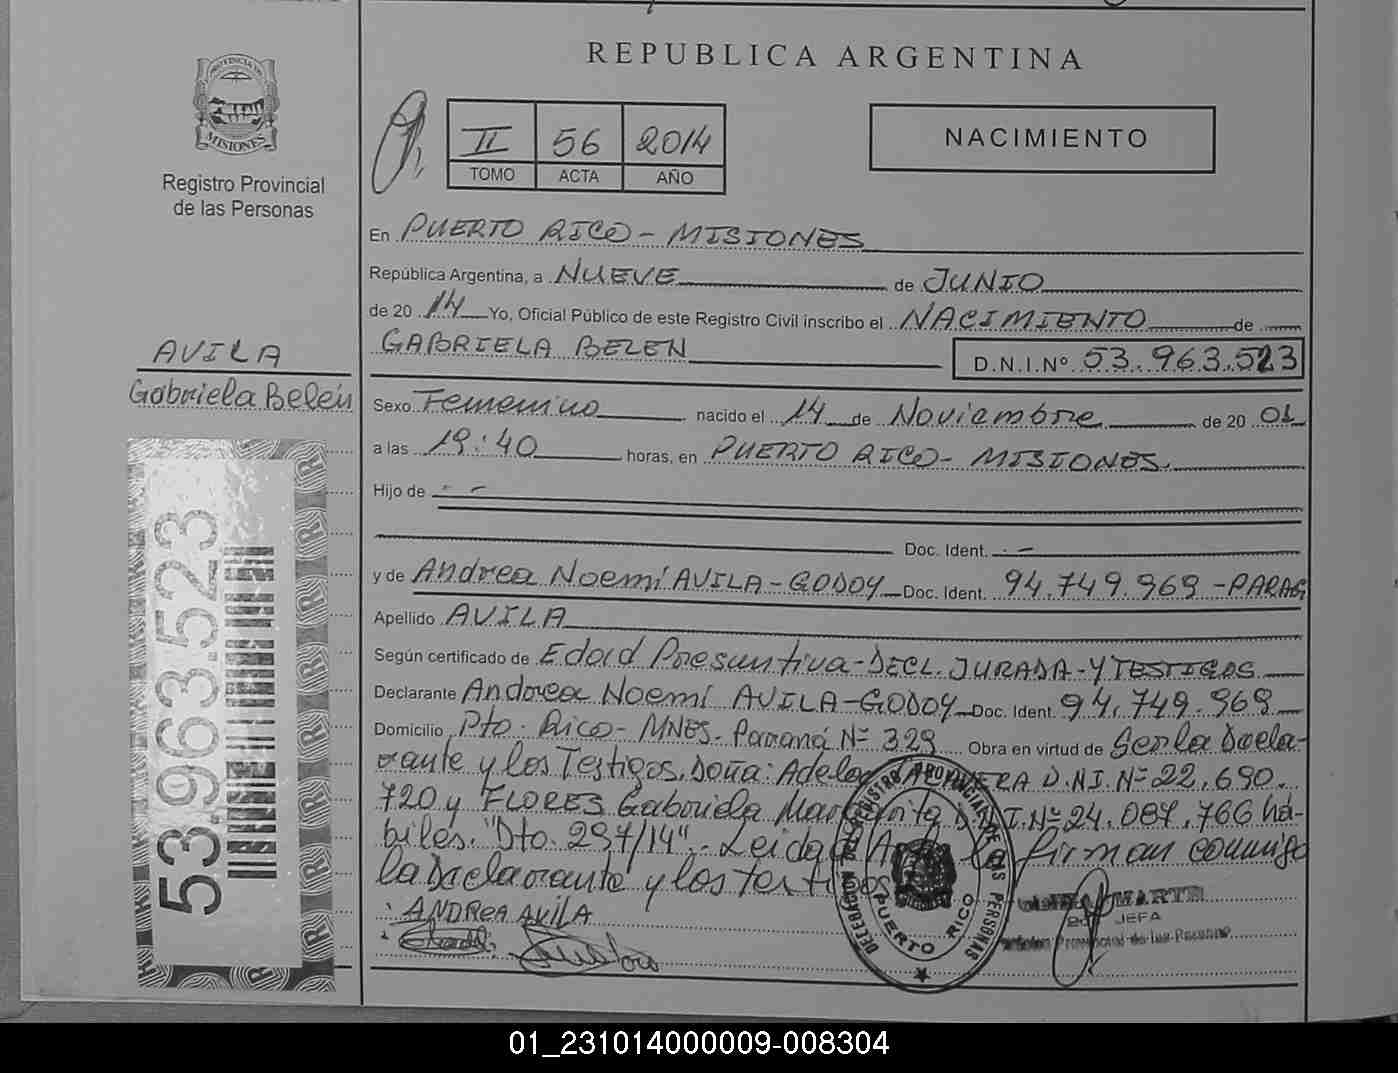 REPUBLICA ARGENTINA
PROVINCIA DE
MISIONES
Registro Provincial
de las Personas
II 56 2014
TOMO ACTA AÑO
NACIMIENTO
En PUERTO RICO - MISIONES
República Argentina, a NUEVE de JUNIO
de 20 14 Yo, Oficial Público de este Registro Civil inscribo el NACIMIENTO de
GABRIELA BELEN D.N.I.Nº 53.963.523
AVILA
Gabriela Belén
Sexo Femenino nacido el 14 de Noviembre de 20 01
a las 19:40 horas, en PUERTO RICO - MISIONES.
Hijo de - -
Doc. Ident. - -
y de Andrea Noemí AVILA - GODOY Doc. Ident. 94.749.969 - PARAG
Apellido AVILA
Según certificado de Edad Presuntiva - DECL. JURADA - Y TESTIGOS
Declarante Andrea Noemí AVILA - GODOY Doc. Ident. 94.749.969
Domicilio Pto. Rico - MNES. Paraná Nº 329 Obra en virtud de Ser la Decla-
rante y los Testigos. Doña: D.N.I. Nº 22.690.
720 y FLORES Gabriela Margarita D.N.I. Nº 24.087.766 há-
biles. "Dto. 297/14". Leida el Acta la firman conmigo
la Declarante y los testigos
ANDREA AVILA
DELEGACION DEL REGISTRO PROVINCIAL DE LAS PERSONAS
PUERTO RICO
DUARTE
JEFA
Registro Provincial de las Personas
53.963.523
01_231014000009-008304